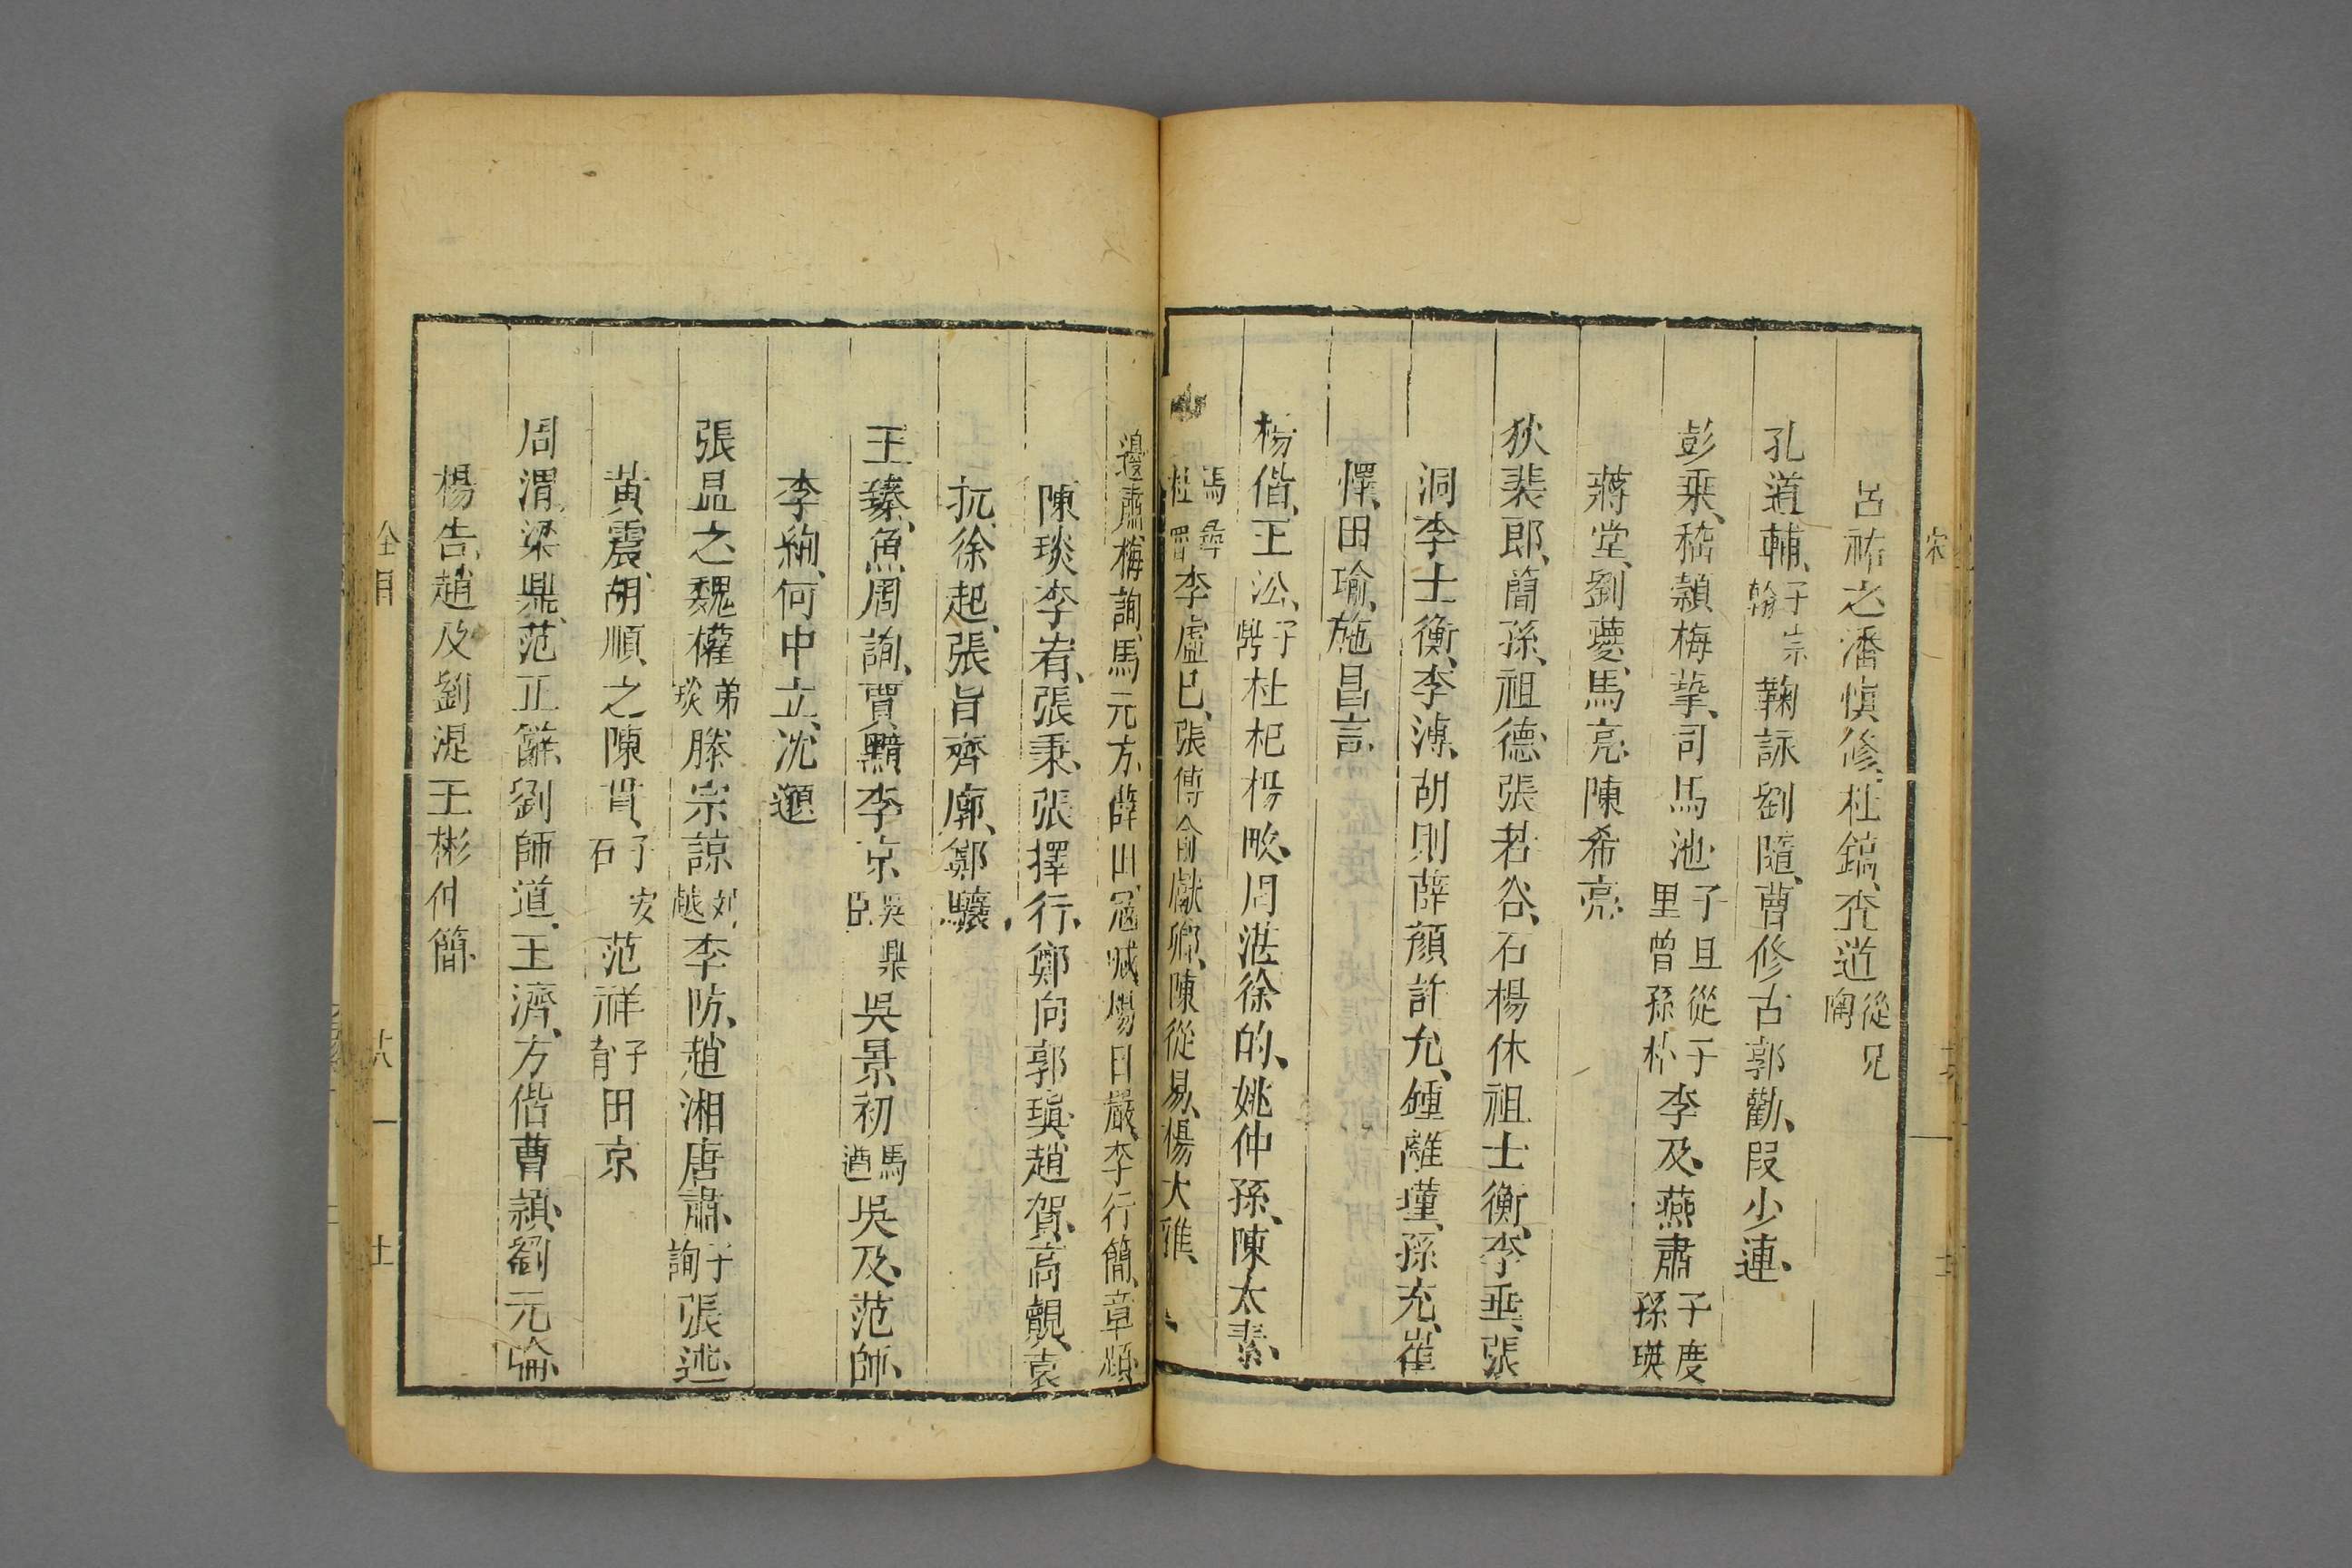 呂祐之、潘慎修、杜鎬、查道從兄陶
孔道輔、子宗翰鞠詠、劉隨、曹修古、郭勸、段少連、
彭乘、嵇穎、梅摯、司馬池、子旦從子里曾孫朴李及、燕肅子度孫瑛
蔣堂、劉夔、馬亮、陳希亮、
狄棐、郎、簡、孫、祖德、張若谷、石楊休、祖士衡、李垂、張
洞、李士衡、李溥、胡則、薛顏、許允、鍾離瑾、孫充、崔
嶧、田瑜、施昌言、
楊偕、王㳂、子鼎杜杞、楊畋、周湛、徐的、姚仲孫、陳太素、
馬尋杜曾李虛己、張傅、俞獻卿、陳從易、楊大雅、
邊肅、梅詢、馬元方、薛田、寇瑊、楊日嚴、李行簡、章頻、
陳琰、李宥、張秉、張擇行、鄭向、郭稹、趙賀、高覿、袁
抗、徐起、張旨、齊廓、鄭驤、
王臻、魚周詢、賈黯、李京吳鼎臣吳景初馬遵吳及、范師、
李絢、何中立、沈邈
張昷之、魏瓘弟琰滕宗諒劉越李防、趙湘、唐肅、子詢張述、
黃震、胡順之、陳貫、子安石范祥子育田京
周渭、梁鼎、范正辭、劉師道、王濟、方偕、曹穎、劉元瑜、
楊告、趙及、劉湜、王彬、仲簡、